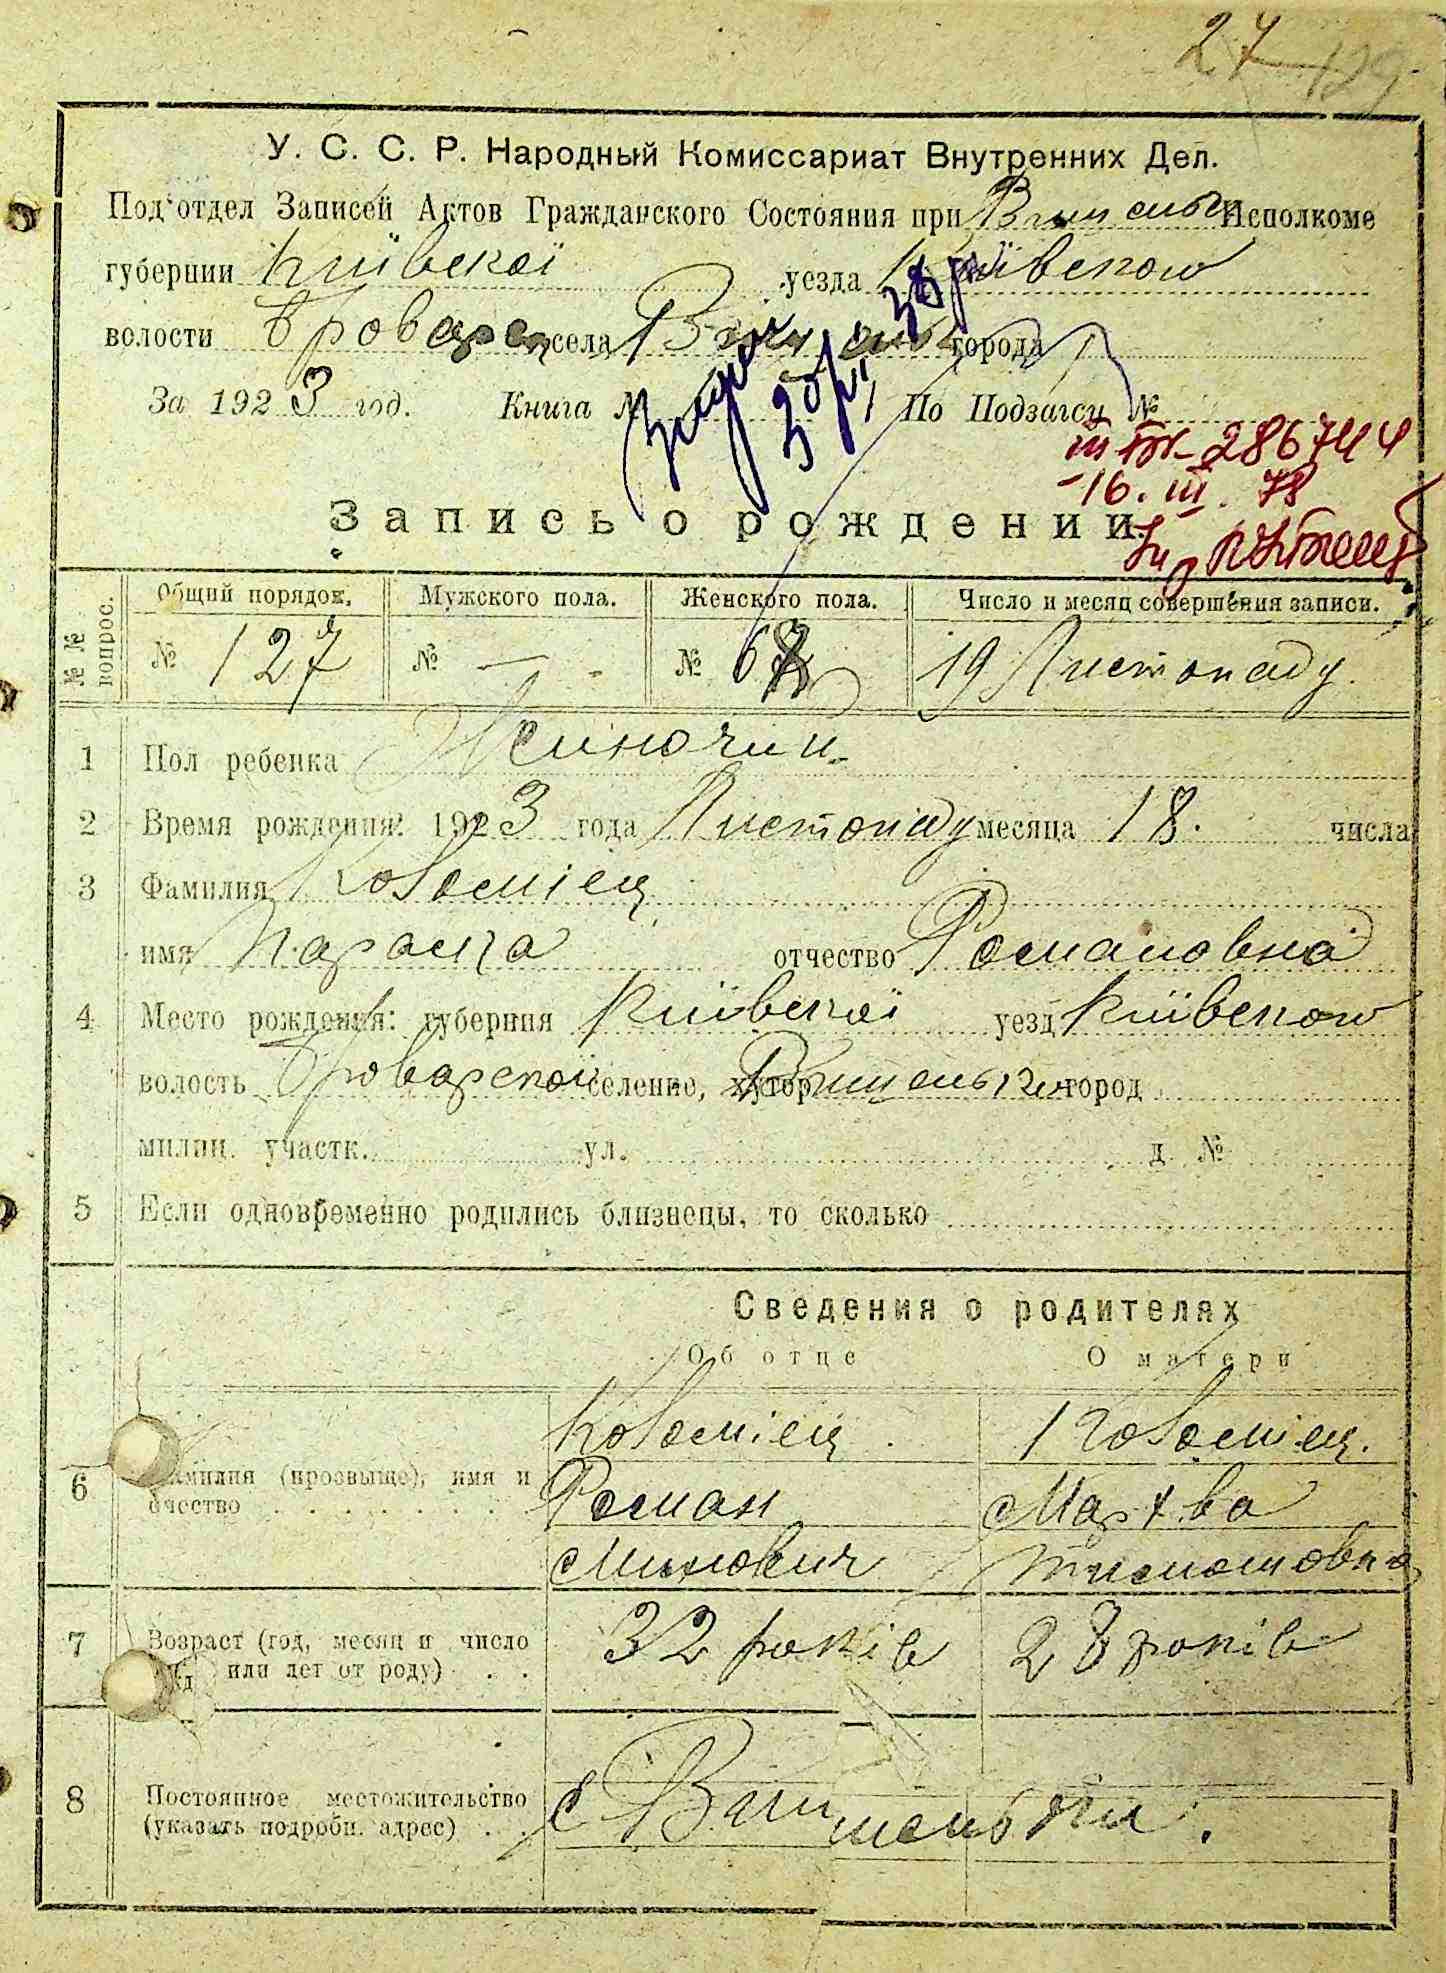 27 129
У. С. С. Р. Народный Комиссариат Внутренних Дел.
Под'отдел Записей Актов Гражданского Состояния при Исполкоме
губернии Київскої уезда Київского
волости Броварск села города
За 1923 год. Книга № По Подзагсу №
30/ 38
286744
16. III. 78
Запись о рождении.
№№ вопрос. Общий порядок. Мужского пола. Женского пола. Число и месяц совершения записи.
№ 127 № — № 68 19 Листопаду.
1 Пол ребенка Жиночий
2 Время рождения: 1923 года Листопаду месяца 18. числа
3 Фамилия Коломіец
имя Параска отчество Романовна
4 Место рождения: губерния Київскої уезд Київского
волость Броварской селение, хутор Вишеньки город
милиц. участк. ул. д. №
5 Если одновременно родились близнецы, то сколько
Сведения о родителях
Об отце О матери
Коломіец. Коломиец.
6 Фамилия (прозвыще), имя и Роман Мархва
очество Минович Тимошовна
7 Возраст (год, месяц и число 32 років 28 років
или лет от роду)
8 Постоянное местожительство с Вишеньки.
(указать подробн. адрес)